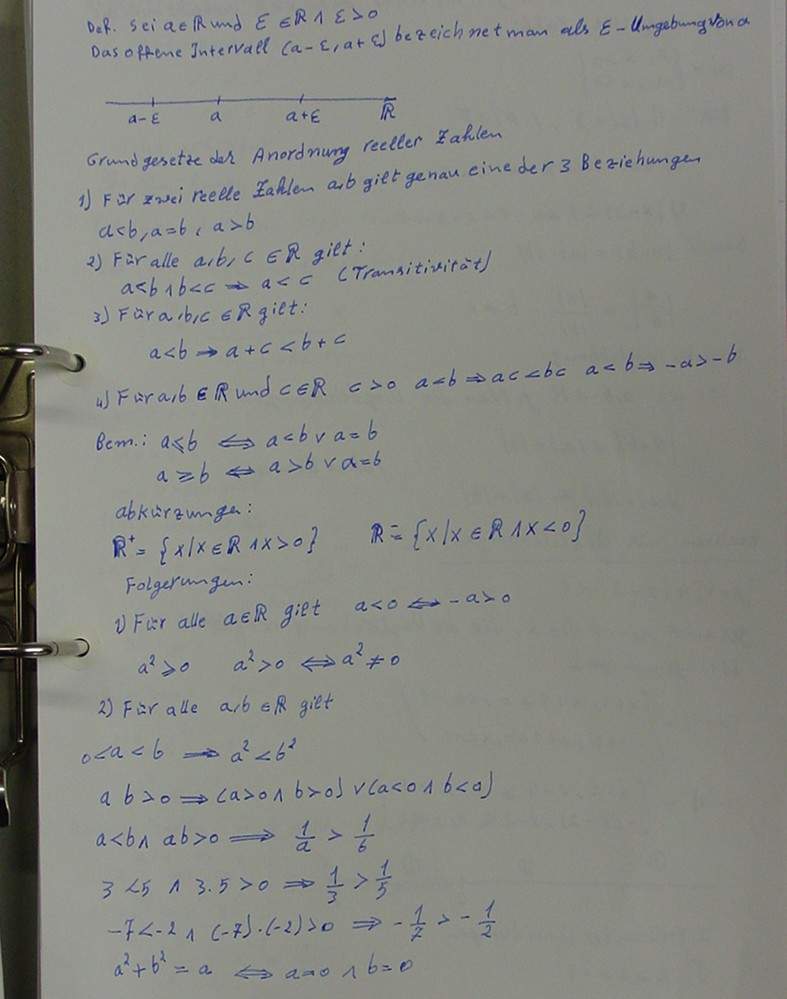 Def. Sei a∈ℝ und ε ∈ℝ ∧ ε>0
Das offene Intervall (a-ε, a+ε) bezeichnet man als ε-Umgebung von a
a-ε a a+ε ℝ
Grundgesetze der Anordnung reeller Zahlen
1) Für zwei reelle Zahlen a,b gilt genau eine der 3 Beziehungen
a<b, a=b, a>b
2) Für alle a,b,c ∈ℝ gilt:
a<b ∧ b<c ⇒ a<c (Transitivität)
3) Für a,b,c ∈ℝ gilt:
a<b ⇒ a+c < b+c
4) Für a,b ∈ℝ und c∈ℝ c>0 a<b ⇒ ac<bc a<b ⇒ -a>-b
Bem.: a≤b ⇔ a<b ∨ a=b
a≥b ⇔ a>b ∨ a=b
abkürzungen:
ℝ⁺ = {x/x∈ℝ ∧ x>0} ℝ⁻ = {x/x∈ℝ ∧ x<0}
Folgerungen:
1) Für alle a∈ℝ gilt a<0 ⇔ -a>0
a²≥0 a²>0 ⇔ a²≠0
2) Für alle a,b ∈ℝ gilt
0<a<b ⇒ a²<b²
a b>0 ⇒ (a>0 ∧ b>0) ∨ (a<0 ∧ b<0)
a<b ∧ ab>0 ⇒ 1/a > 1/b
3<5 ∧ 3·5>0 ⇒ 1/3 > 1/5
-7<-2 ∧ (-7)·(-2)>0 ⇒ -1/7 > -1/2
a²+b² = a ⇔ a=0 ∧ b=0